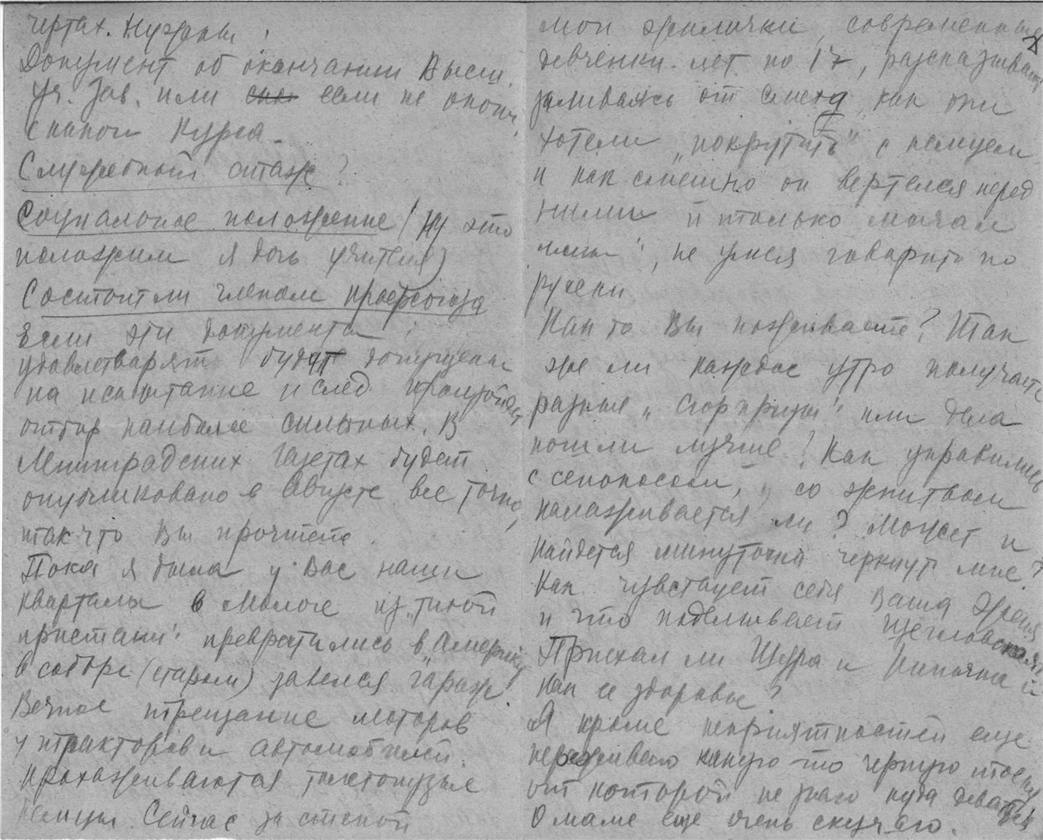 чертах. Нужны:
Документ об окончании Высш.
уч. зав. или если не оконч.
с какого курса.
Служебный стаж?
Социальное положение (ну это
положим я дочь учителя)
Состоит ли членом профсоюза
Если эти документы
удовлетворят будут допущены
на испытание и след
отбор наиболее сильных. В
Ленинградских газетах будет
опубликовано в Августе все точно,
так что Вы прочтете.
Пока я была у Вас наши
кварталы в Мологе из „тихой
пристани" превратились в „Америку"
в соборе (старом) завелся „гараж"
Вечное трещание моторов
и тракторов и автомобилей.
прохаживаются толстопузые
немцы. Сейчас за стеной
мои жилички, современные
девченки лет по 17, рассказывают
заливаясь от смеха, как они
хотели „покрутить" с немцем
и как смешно он вертелся перед
ними и только мычал
, не умея говорить по
русски.
Как то Вы поживаете? Так
же ли каждое утро получаете
разные „сюрпризы" или дела
пошли лучше? Как управились
с сенокосом, со жнитвом
налаживается ли? Может и
найдется минуточка черкнуть мне?
Как чувствует себя Ваша
и что поделывает Щегловская?
Приехал ли Шура и Линочка и
как ее здоровье?
Я кроме неприятностей еще
переживаю какую-то черную тоску
от которой не знаю куда деваться
О маме еще очень скучаю.